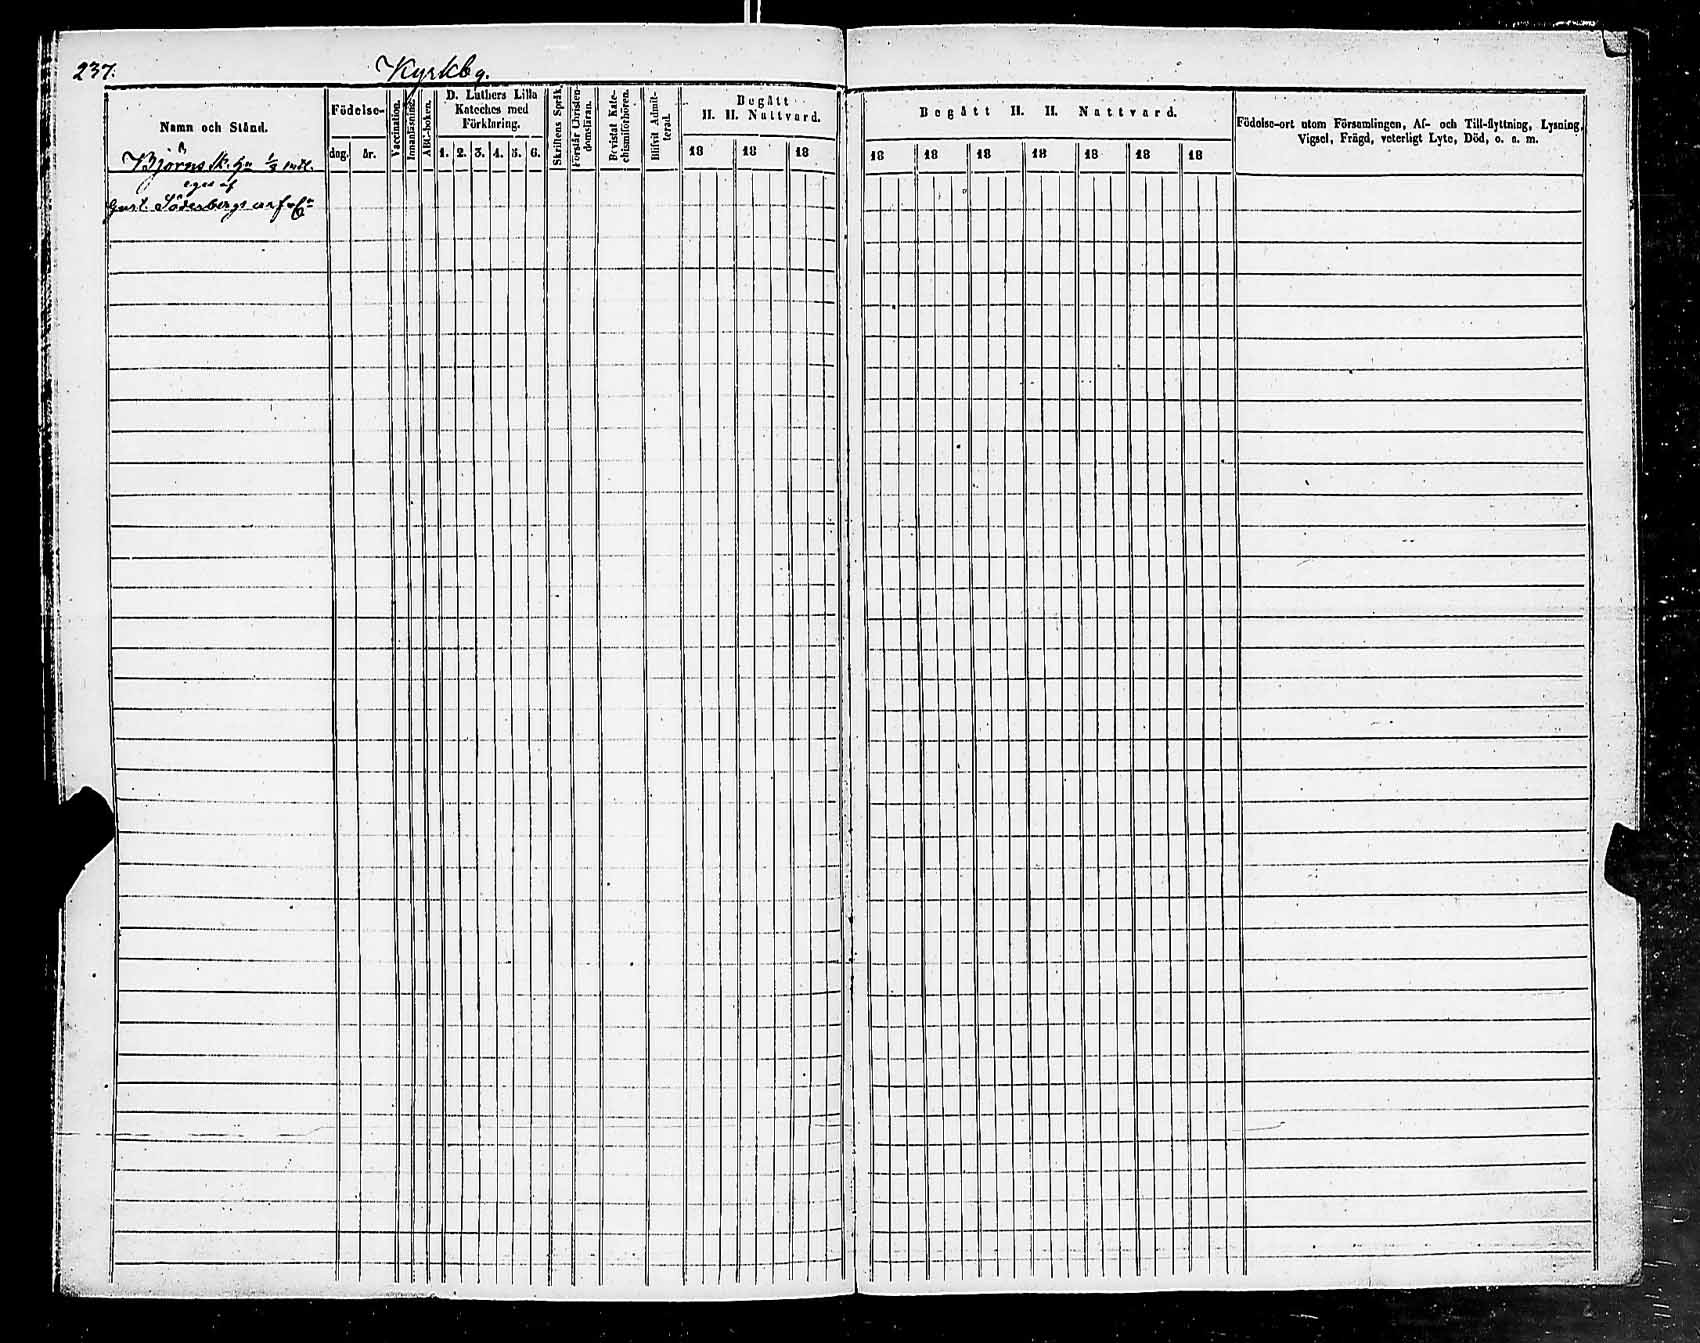 237.
Kyrkbg.
Namn och Stånd.
Födelse-
dag.
år.
Vaccination.
Innanläsning.
ABC-boken.
D. Luthers Lilla
Kateches med
Förklaring.
1. 2. 3. 4. 5. 6.
Skriftens Språk.
Förstår Christen-
domsläran.
Bevistat Kate-
chismiförhören.
Blifvit Admit-
terad.
Begått
H. H. Nattvard.
18 18 18
Begått H. H. Nattvard.
18 18 18 18 18 18 18
Födelse-ort utom Församlingen, Af- och Till-flyttning, Lysning,
Vigsel, Frägd, veterligt Lyte, Död, o. s. m.
Björns 1/2 mtl.
eges af
Gust. Söderbergs